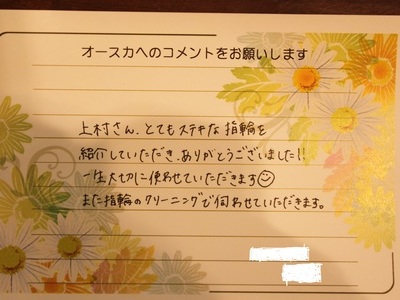 オースカへのコメントをお願いします
上村さん、とてもステキな指輪を
紹介していただき、ありがとうございました!!
一生大切に使わせていただきます☺
また指輪のクリーニングで伺わせていただきます。